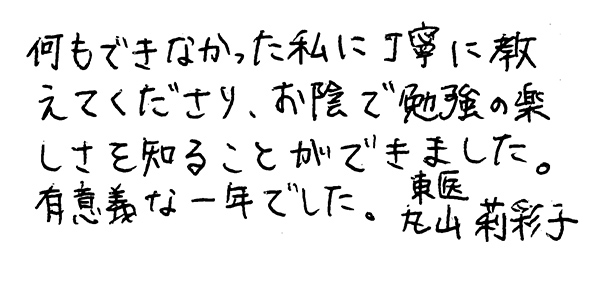 何もできなかった私に丁寧に教
えてくださり、お陰で勉強の楽
しさを知ることができました。
有意義な一年でした。
東医
丸山 莉彩子